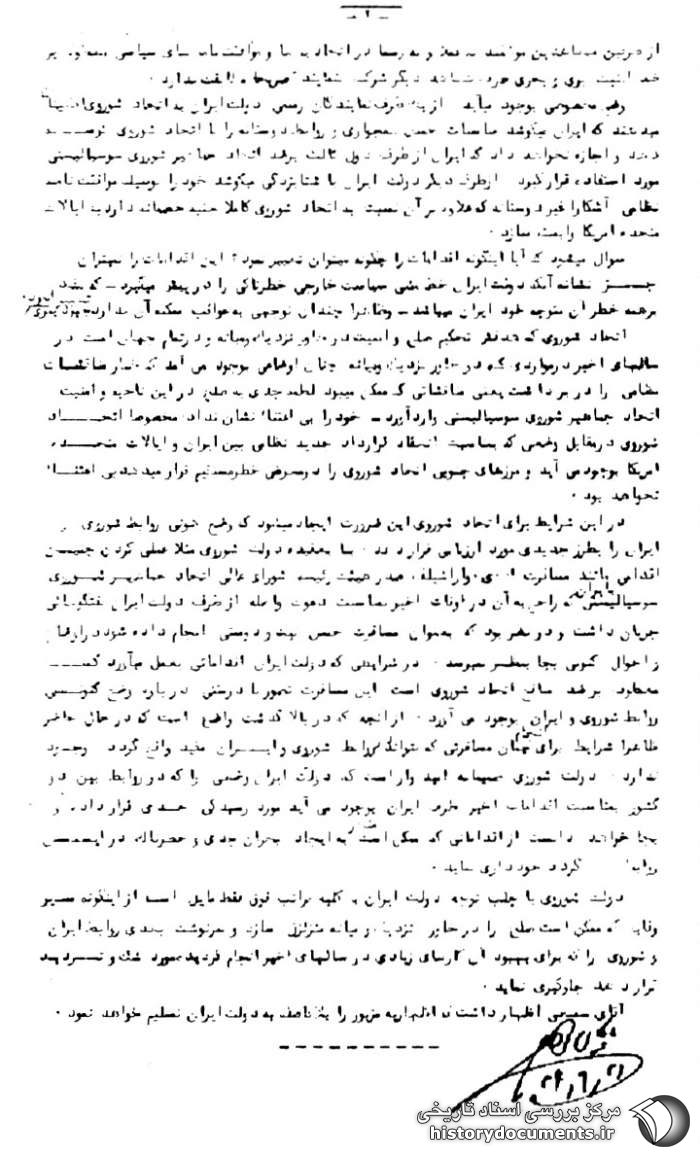 - ۲ -
خط امنیت بوی و بحری خود دیگر شرکت نمایند صریحاً مخالفت ندارد .
وضع مخصوصی بوجود میآید . از یکطرف نمایندگان رسمی دولت ایران به اتحاد شوروی
میدهند که ایران میکوشد مناسبات حسن همجواری و روابط دوستانه را با اتحاد شوروی توسعه
دهد و اجازه نخواهد داد که ایران از طرف دول ثالث برضد اتحاد جماهیر شوروی سوسیالیستی
مورد استفاده قرار گیرد . از طرف دیگر دولت ایران با شتابزدگی میکوشد خود را بوسیله موافقت نامه
نظامی آشکارا غیر دوستانه که علاوه بر آن نسبت به اتحاد شوروی کاملا جنبه خصمانه دارد به ایالات
متحده امریکا وابسته سازد .
سوال میشود که آیا اینگونه اقدامات را چگونه میتوان تعبیر نمود ؟ این اقدامات را نمیتوان
جز نشانه آنکه دولت ایران خط مشی سیاست خارجی خطرناکی را در پیش میگیرد - که
خطر آن متوجه خود ایران میباشد - و ظاهرا چندان توجهی به عواقب ممکنه آن ندارد
اتحاد شوروی که هدفش تحکیم صلح و امنیت در خاور نزدیک و میانه و در تمام جهان است در
سالهای اخیر در مواردی که در خاور نزدیک و میانه چنان اوضاعی بوجود می آمد که خطر مناقشات
نظامی را در بر داشت یعنی مناقشاتی که ممکن میبود لطمه جدی به صلح در این ناحیه و امنیت
اتحاد جماهیر شوروی سوسیالیستی وارد آورد - خود را بی اعتنا نشان نداد مخصوصا اتحاد
شوروی در مقابل وضعی که بمناسبت انعقاد قرارداد جدید نظامی بین ایران و ایالات متحده
امریکا بوجود می آید و مرزهای جنوبی اتحاد شوروی را در معرض خطر مستقیم قرار میدهد بی اعتنا
نخواهد بود .
در این شرایط برای اتحاد شوروی این ضرورت ایجاد میشود که وضع کنونی روابط شوروی و
ایران را بطرز جدیدی مورد ارزیابی قرار دهد . بنا بعقیده دولت شوروی مثلا عملی کردن چنین
اقدامی مانند مسافرت واراشیلف صدر هیئت رئیسه شورای عالی اتحاد جماهیر شوروی
سوسیالیستی به ایران که راجع به آن در اوقات اخیر بمناسبت دعوت واصله از طرف دولت ایران گفتگوهائی
جریان داشت و در نظر بود که بعنوان مسافرت حسن نیت و دوستی انجام داده شود در اوضاع
و احوال کنونی بجا بنظر نمیرسد . در شرایطی که دولت ایران اقداماتی بعمل میآورد که
برضد منافع اتحاد شوروی است این مسافرت تصور نادرستی در باره وضع کنونی
روابط شوروی و ایران بوجود می آورد . از آنچه که در بالا گذشت واضح است که در حال حاضر
ظاهرا شرایط برای انجام چنان مسافرتی که بتواند بروابط شوروی و ایران مفید واقع گردد وجود
ندارد . دولت شوروی صمیمانه امیدوار است که دولت ایران وضعی را که در روابط بین دو
کشور بمناسبت اقدامات اخیر طرف ایران بوجود می آید مورد رسیدگی جدی قرار داده و
بجا خواهد دانست از اقداماتی که ممکن است به ایجاد بحران جدی و خطرناک در این
روابط گردد خودداری نماید .
دولت شوروی با جلب توجه دولت ایران به کلیه مراتب فوق فقط مایل است از اینگونه سیر
وقایع که ممکن است صلح را در خاور نزدیک و میانه متزلزل سازد و سرنوشت بعدی روابط ایران
و شوروی را که برای بهبود آن کارهای زیادی در سالهای اخیر انجام گردید مورد شک و تردید
قرار دهد جلوگیری نماید .
آقای اظهار داشت که اظهاریه مزبور را به دولت ایران تسلیم خواهد نمود .
مرکز بررسی اسناد تاریخی
historydocuments.ir